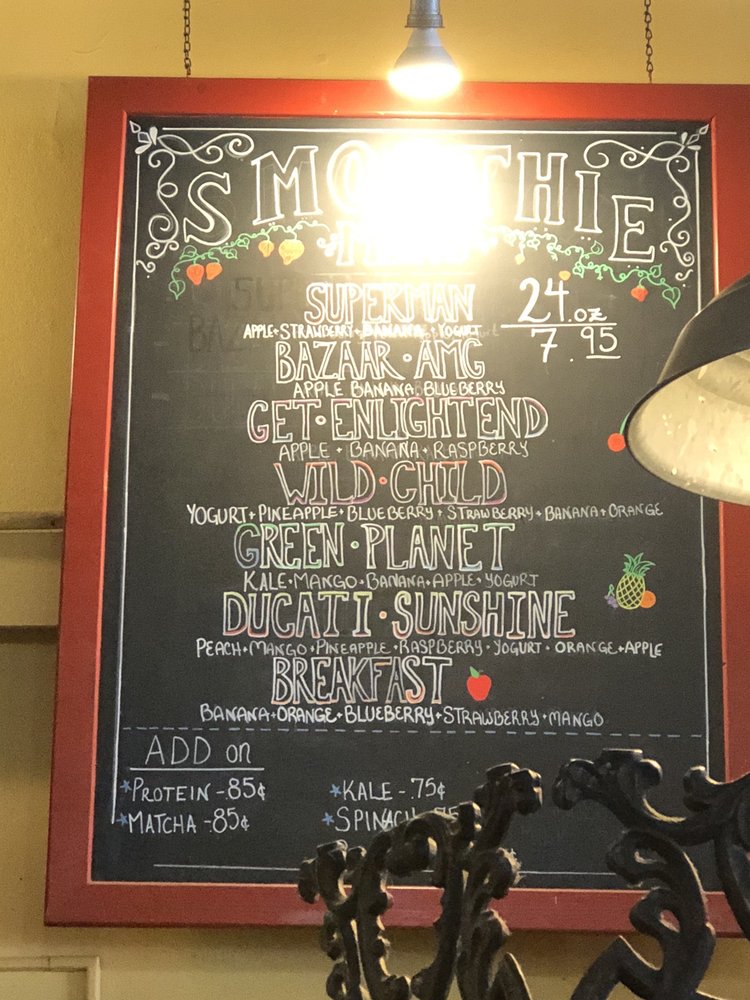 SMOOTHIE
SUPERMAN
24.oz
APPLE+STRAWBERRY+BANANA+YOGURT
7.95
BAZAAR•AMG
APPLE BANANA BLUEBERRY
GET•ENLIGHTEND
APPLE + BANANA + RASPBERRY
WILD•CHILD
YOGURT+PINEAPPLE+BLUEBERRY+STRAWBERRY+BANANA+ORANGE
GREEN•PLANET
KALE•MANGO+BANANA+APPLE+YOGURT
DUCATI•SUNSHINE
PEACH+MANGO+PINEAPPLE•RASPBERRY•YOGURT•ORANGE+APPLE
BREAKFAST
BANANA+ORANGE+BLUEBERRY+STRAWBERRY+MANGO
ADD on
*PROTEIN -.85¢ *KALE -.75¢
*MATCHA -.85¢ *SPINACH